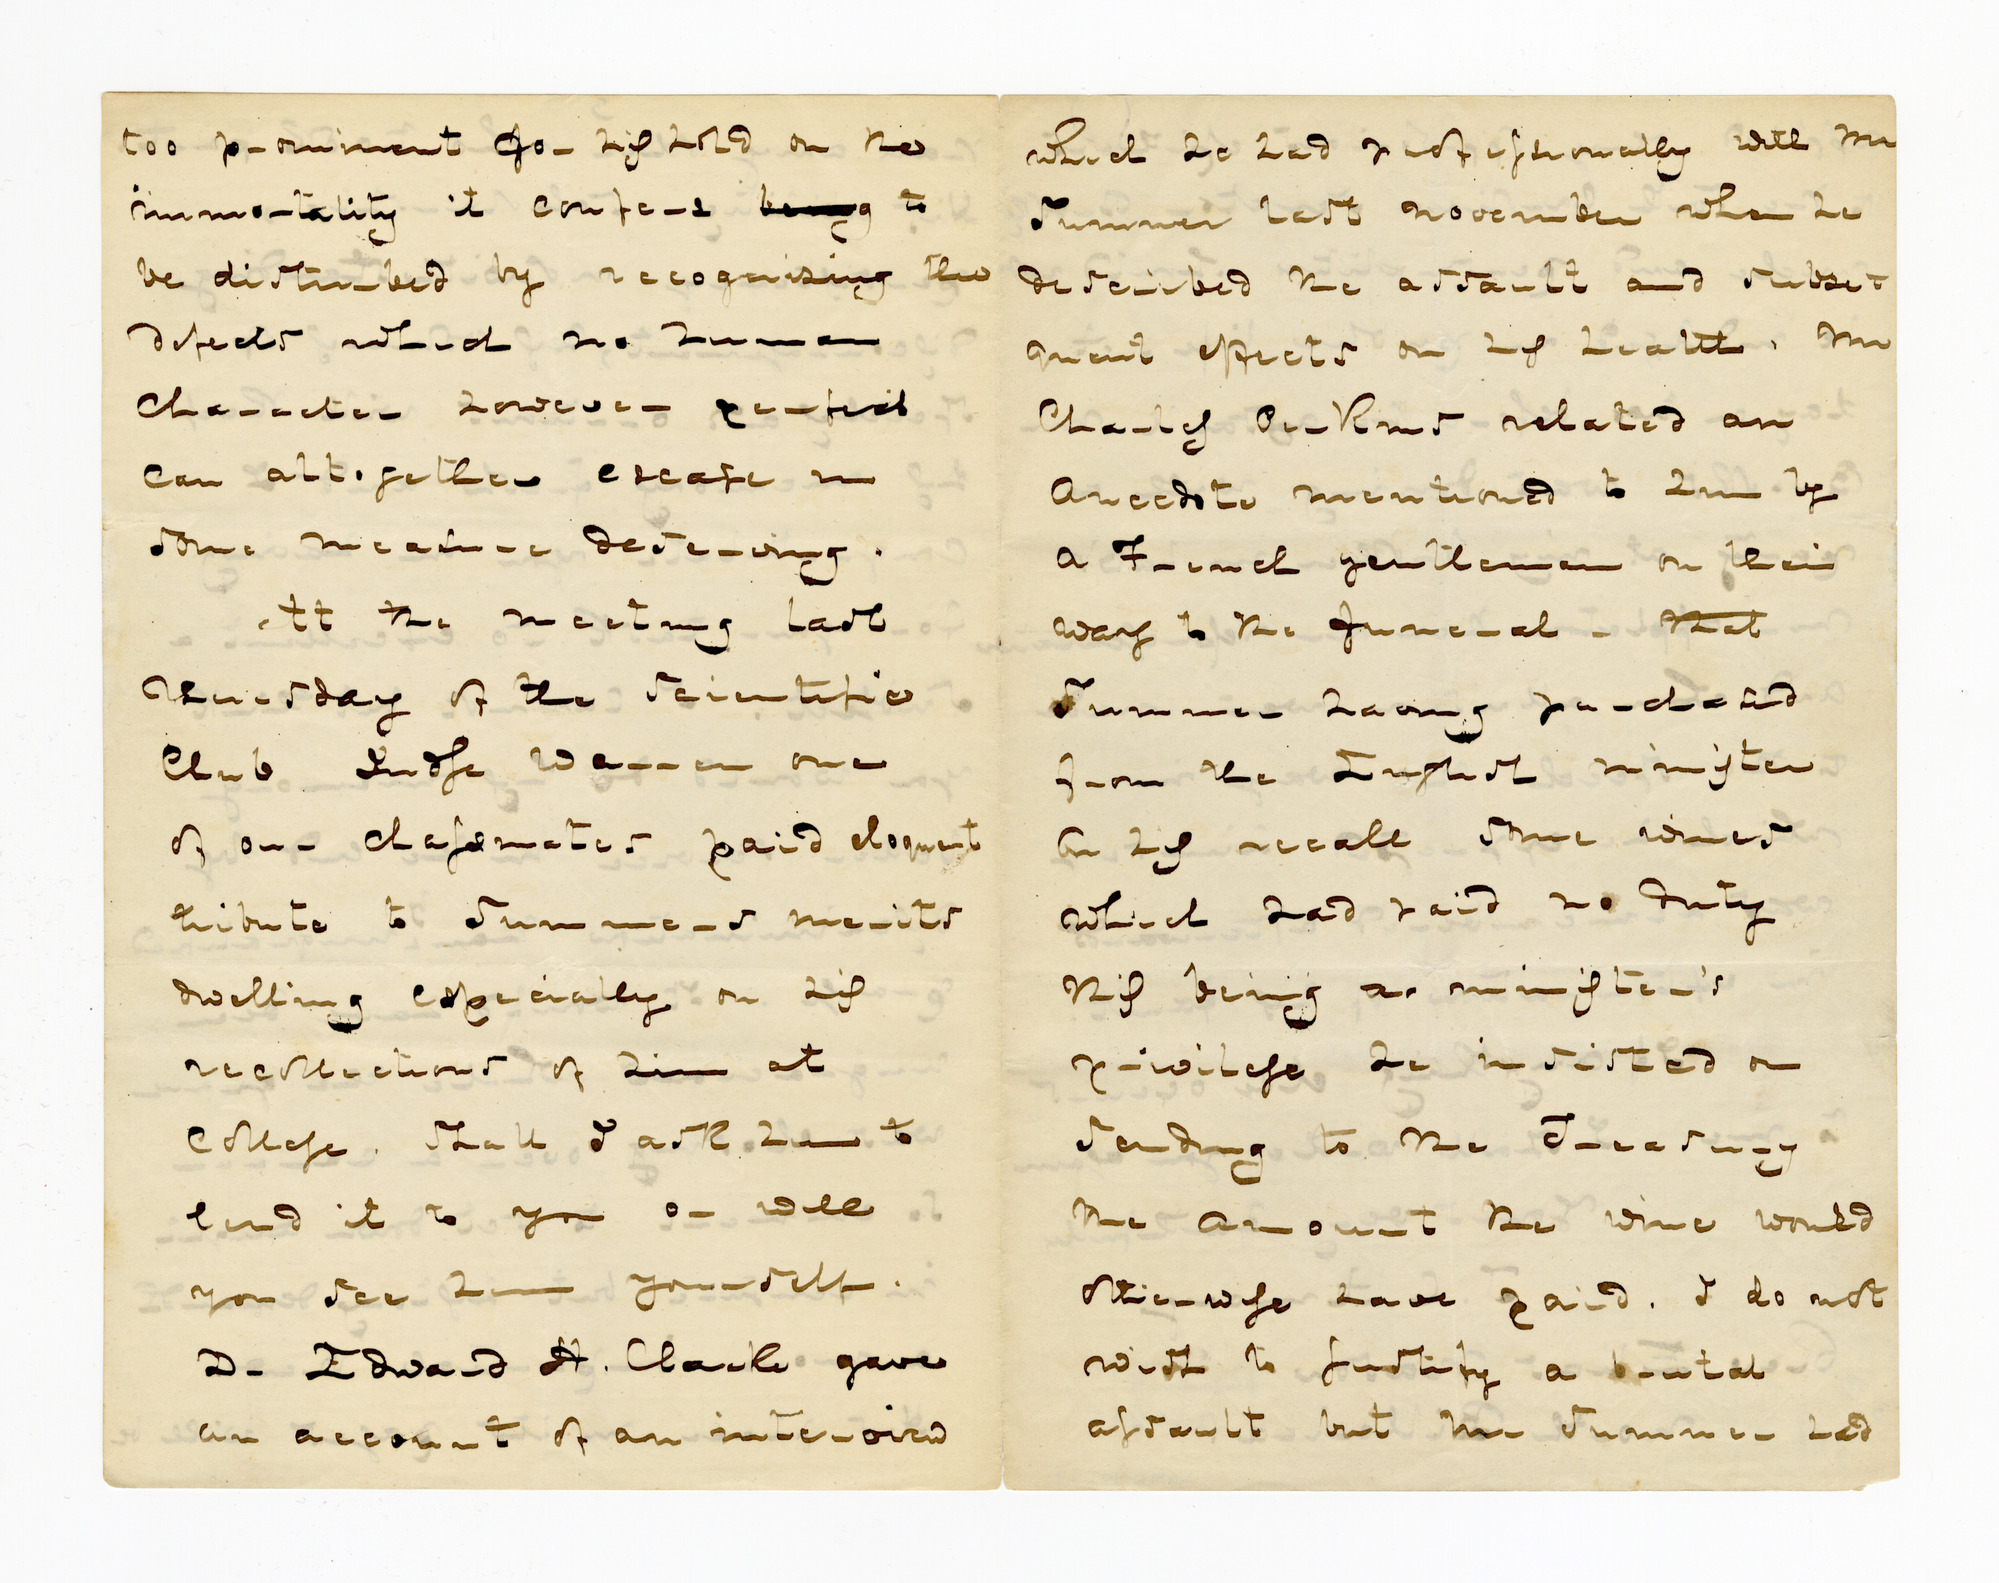 too prominent for his hold on the
immortality it confers being to
be disturbed by recognising the
defects which no human
Character however perfect
can altogether escape in
some measure deserving.
At the meeting last
Thursday of the Scientific
Club Judge Warren one
of our classmates paid eloquent
tribute to Sumners merits
dwelling especially on his
recollections of him at
College. Shall I ask him to
lend it to you or will
you see him yourself.
Dr Edward H. Clarke gave
an account of an interview
which he had professionally with Mr
Sumner last November when he
described the assault and subse
quent effects on his health. Mr
Charles Perkins related an
Anecdote mentioned to him by
a French gentleman on their
way to the funeral - that
Sumner having purchased
from the English minister
on his recall some wines
which had paid no duty
this being a minister's
privilege he insisted on
sending to the Treasury
the amount the wine would
otherwise have paid. I do not
wish to justify a brutal
assault but Mr Sumner had